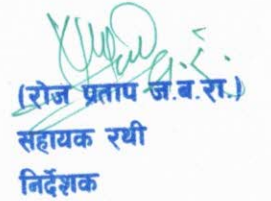 (रोज प्रताप ज.ब.रा.)
सहायक रथी
निर्देशक